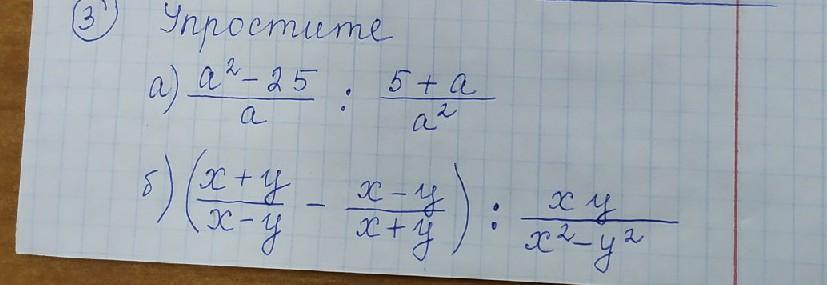 3) Упростите
а) (a² - 25)/a : (5 + a)/a²
б) ((x + y)/(x - y) - (x - y)/(x + y)) : xy/(x² - y²)